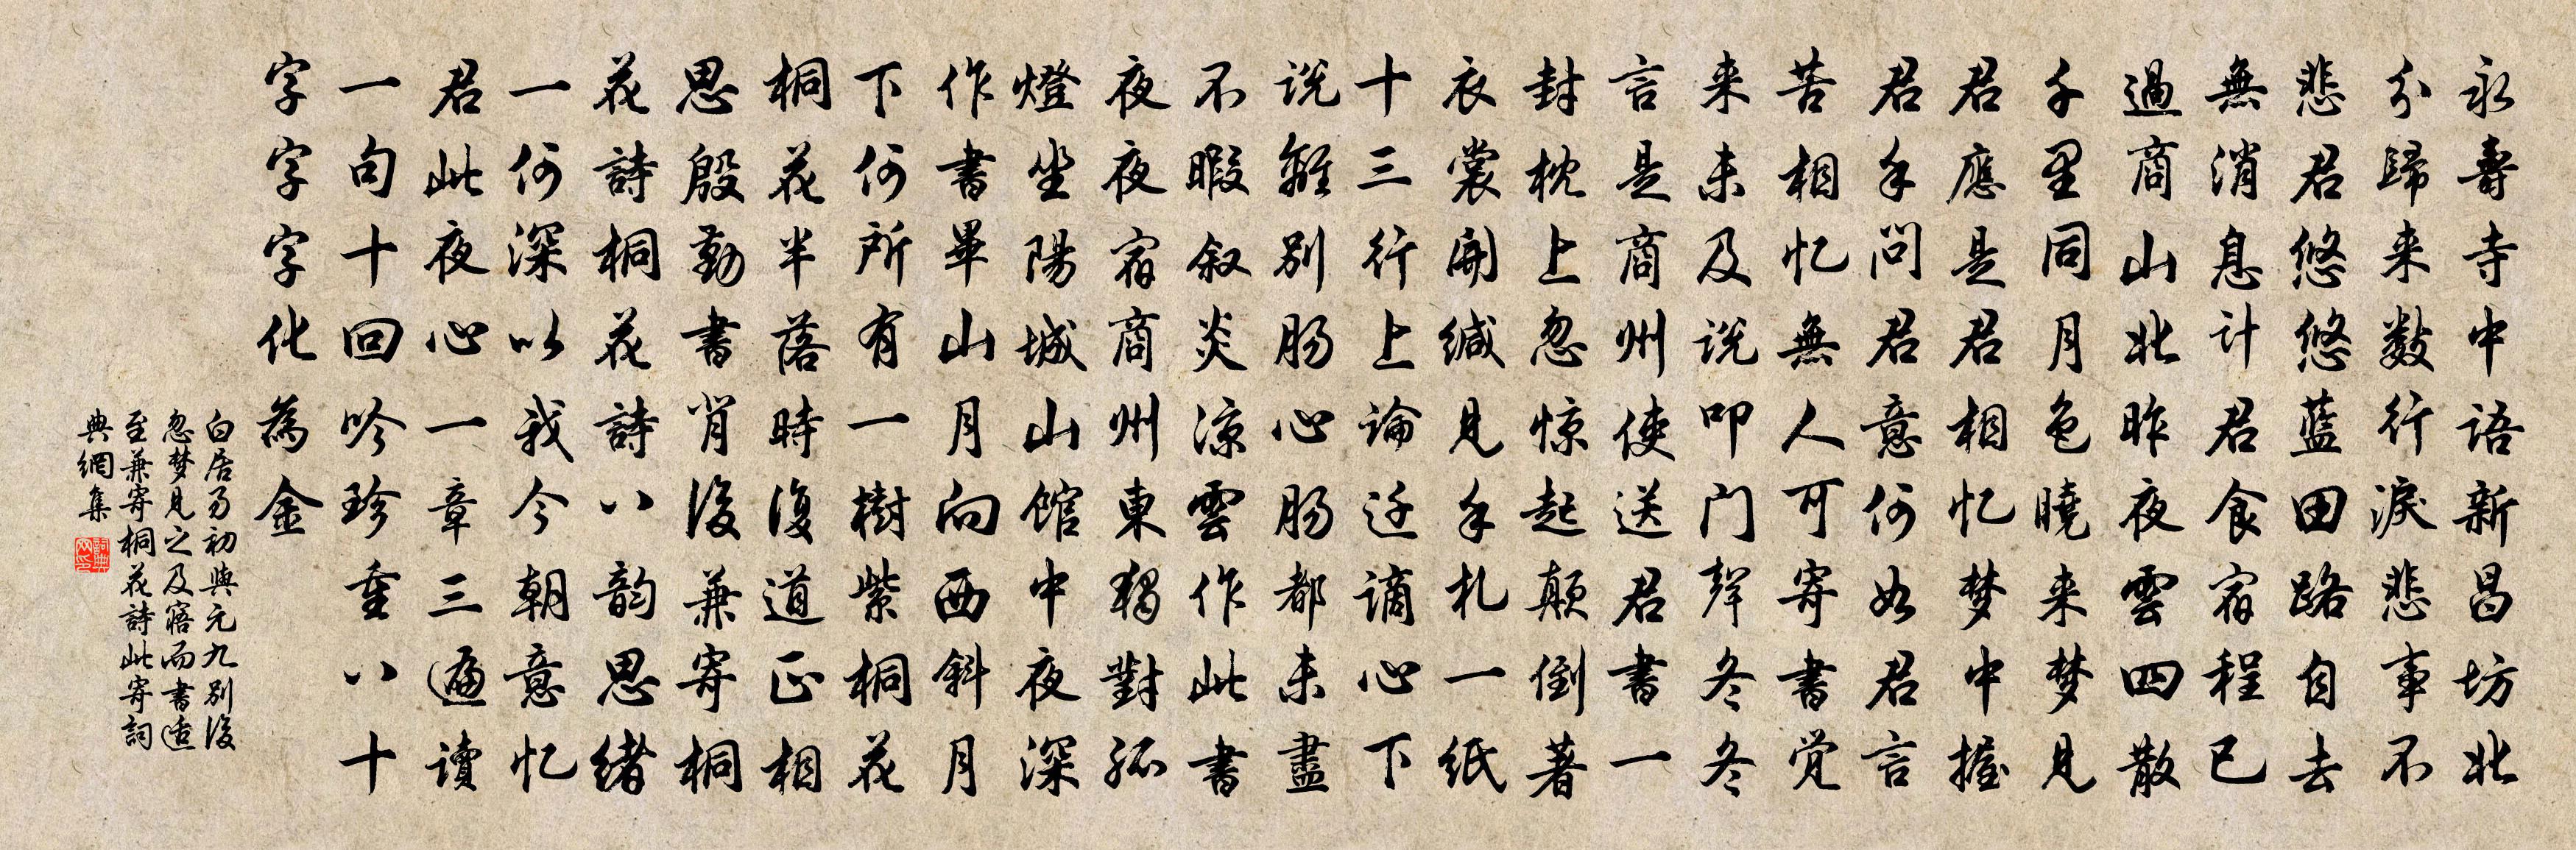 永壽寺中语新昌坊北
分歸来数行淚悲事不
悲君悠悠蓝田路自去
無消息计君食宿程已
過商山北昨夜雲四散
千里同月色曉来梦見
君應是君相忆梦中握
君手问君意何如君言
苦相忆無人可寄書觉
来未及说叩门聲冬冬
言是商州使送君書一
封枕上忽惊起颠倒著
衣裳開缄見手札一纸
十三行上論迁谪心下
说離别肠心肠都未盡
不暇叙炎凉雲作此書
夜夜宿商州東獨對孤
燈坐陽城山馆中夜深
作書畢山月向西斜月
下何所有一樹紫桐花
桐花半落時復道正相
思殷勤書背後兼寄桐
花詩桐花詩八韵思绪
一何深以我今朝意忆
君此夜心一章三遍讀
一句十回吟珍重八十
字字字化為金
白居易初與元九别後
忽梦見之及寤而書适
至兼寄桐花詩此寄詞
典網集
詞典网印